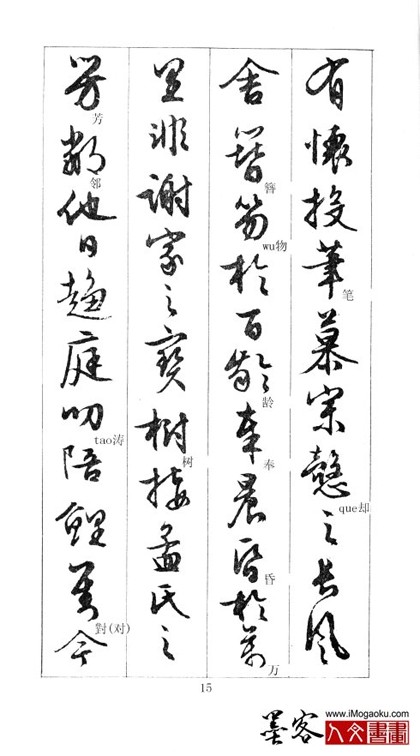 有懷投筆慕宗愨之長風
笔
que却
舍簪笏於百齡奉晨昏於萬
簪
wu物
龄
奉
昏
万
里非謝家之寶樹接孟氏之
树
芳鄰他日趨庭叨陪鯉對今
芳
邻
tao涛
對(对)
15
墨客
www.iMogaoku.com
人文書畫